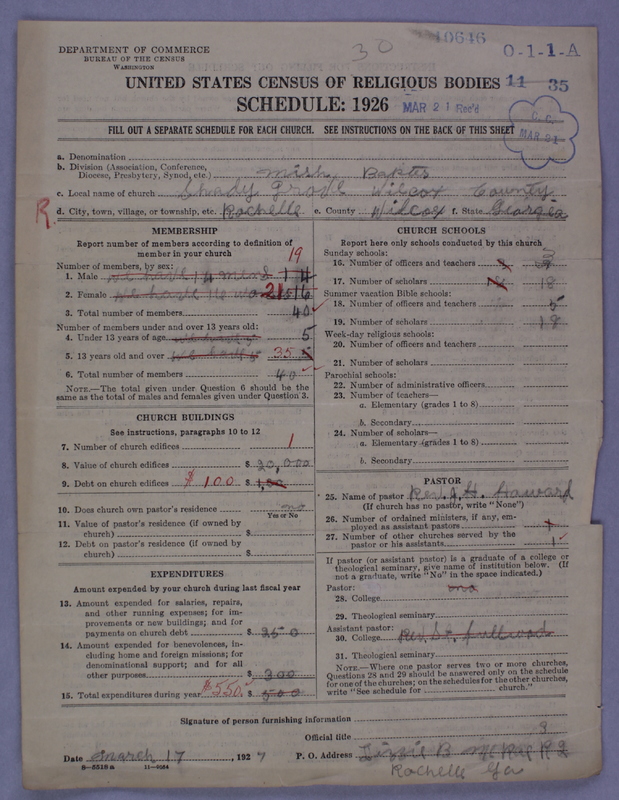 DEPARTMENT OF COMMERCE
BUREAU OF THE CENSUS
WASHINGTON
30
10646
O-1-1-A
UNITED STATES CENSUS OF RELIGIOUS BODIES 11 35
SCHEDULE: 1926 MAR 21 Rec'd
C. C.
MAR 31
FILL OUT A SEPARATE SCHEDULE FOR EACH CHURCH. SEE INSTRUCTIONS ON THE BACK OF THIS SHEET
a. Denomination
b. Division (Association, Conference,
Diocese, Presbytery, Synod, etc.) Mish Baptis
c. Local name of church Shady Grove Wilcox County
R. d. City, town, village, or township, etc. Rochelle e. County Wilcox f. State Georgia
MEMBERSHIP
Report number of members according to definition of
member in your church
19
Number of members, by sex:
1. Male we have 14 mens 14
2. Female we have 16 wo 21 16
3. Total number of members 40
Number of members under and over 13 years old:
4. Under 13 years of age 5
5. 13 years old and over 35
6. Total number of members 40
NOTE.—The total given under Question 6 should be the
same as the total of males and females given under Question 3.
CHURCH BUILDINGS
See instructions, paragraphs 10 to 12
7. Number of church edifices 1
8. Value of church edifices $ 20,000
9. Debt on church edifices $100 $ 1,00
10. Does church own pastor's residence no
Yes or No
11. Value of pastor's residence (if owned by
church) $
12. Debt on pastor's residence (if owned by
church) $
EXPENDITURES
Amount expended by your church during last fiscal year
13. Amount expended for salaries, repairs,
and other running expenses; for im-
provements or new buildings; and for
payments on church debt $ 250
14. Amount expended for benevolences, in-
cluding home and foreign missions; for
denominational support; and for all
other purposes $ 300
15. Total expenditures during year $550. $ 500
CHURCH SCHOOLS
Report here only schools conducted by this church
Sunday schools:
16. Number of officers and teachers 3
17. Number of scholars 18
Summer vacation Bible schools:
18. Number of officers and teachers 5
19. Number of scholars 18
Week-day religious schools:
20. Number of officers and teachers
21. Number of scholars
Parochial schools:
22. Number of administrative officers
23. Number of teachers—
a. Elementary (grades 1 to 8)
b. Secondary
24. Number of scholars—
a. Elementary (grades 1 to 8)
b. Secondary
PASTOR
25. Name of pastor Rev. J. H. Haward
(If church has no pastor, write "None")
26. Number of ordained ministers, if any, em-
ployed as assistant pastors 1
27. Number of other churches served by the
pastor or his assistants 1
If pastor (or assistant pastor) is a graduate of a college or
theological seminary, give name of institution below. (If
not a graduate, write "No" in the space indicated.)
Pastor: no
28. College
29. Theological seminary
Assistant pastor:
30. College Rev. fullwood
31. Theological seminary
NOTE.—Where one pastor serves two or more churches,
Questions 28 and 29 should be answered only on the schedule
for one of the churches; on the schedules for the other churches,
write "See schedule for church."
Signature of person furnishing information
Official title
Date March 17, 1927 P. O. Address Lizzie B McRae R 2
8—5518a 11—4084 Rochelle Ga